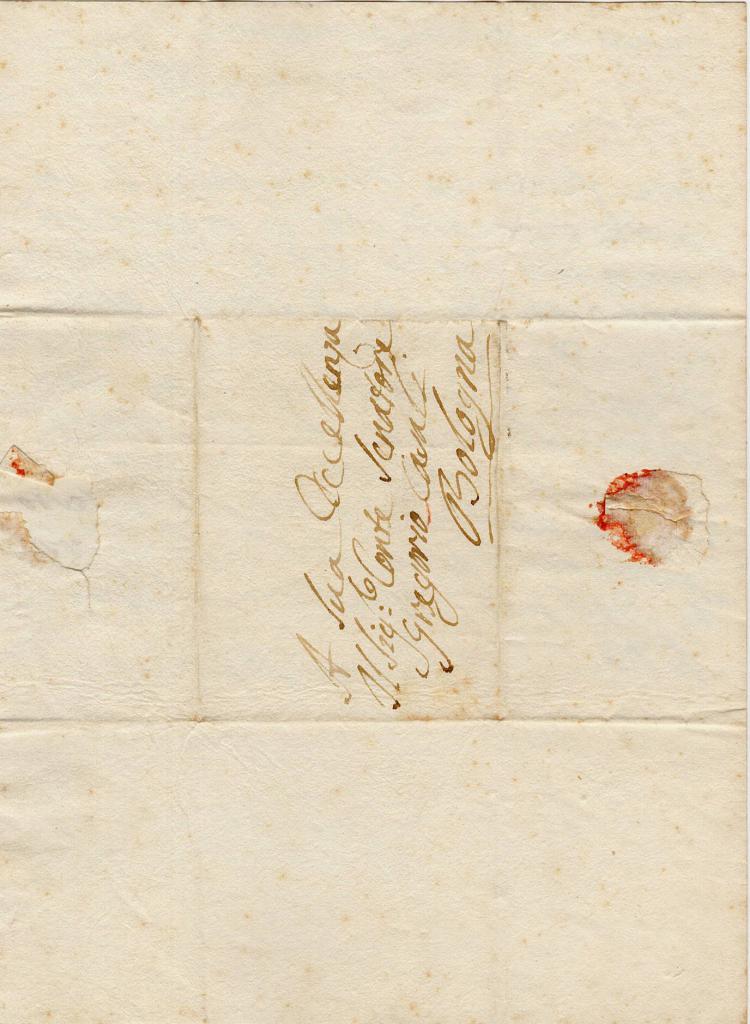 A Sua Eccellenza
Il Sig:r Conte Senatore
Gregorio Casali
Bologna